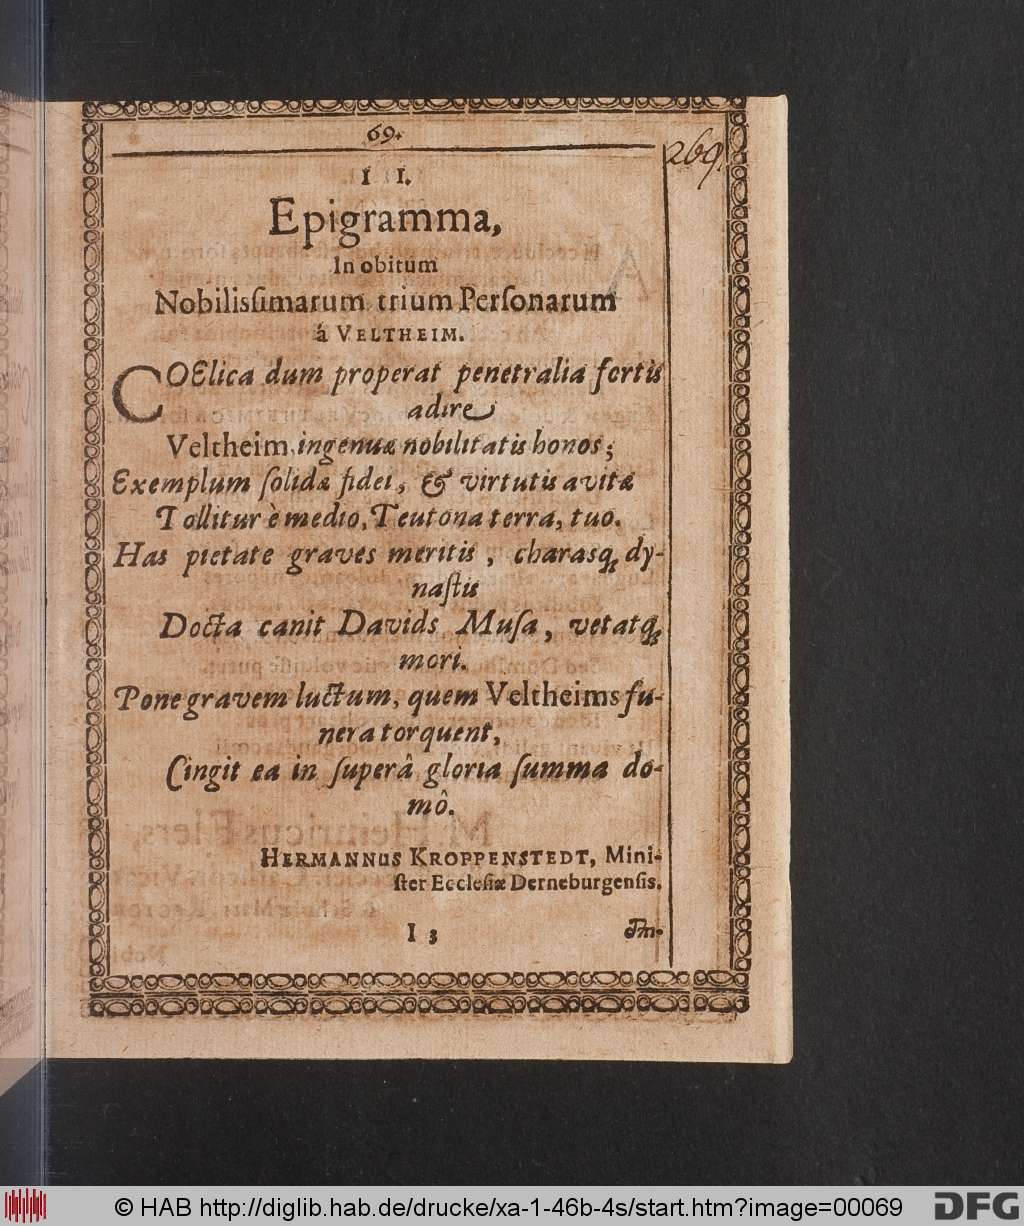 69.
269.
I I.
Epigramma,
In obitum
Nobilissimarum trium Personarum
á VELTHEIM.
COElica dum properat penetralia fortis
adire
Veltheim, ingenuæ nobilitatis honos;
Exemplum solidæ fidei, & virtutis avitæ
Tollitur è medio, Teutona terra, tuo.
Has pietate graves meritis, charasq; dy-
nastis
Docta canit Davids Musa, vetatq;
mori.
Pone gravem luctum, quem Veltheims fu-
nera torquent,
Cingit ea in superâ gloria summa do-
mô.
HERMANNUS KROPPENSTEDT, Mini-
ster Ecclesiæ Derneburgensis.
I 3
© HAB http://diglib.hab.de/drucke/xa-1-46b-4s/start.htm?image=00069
DFG